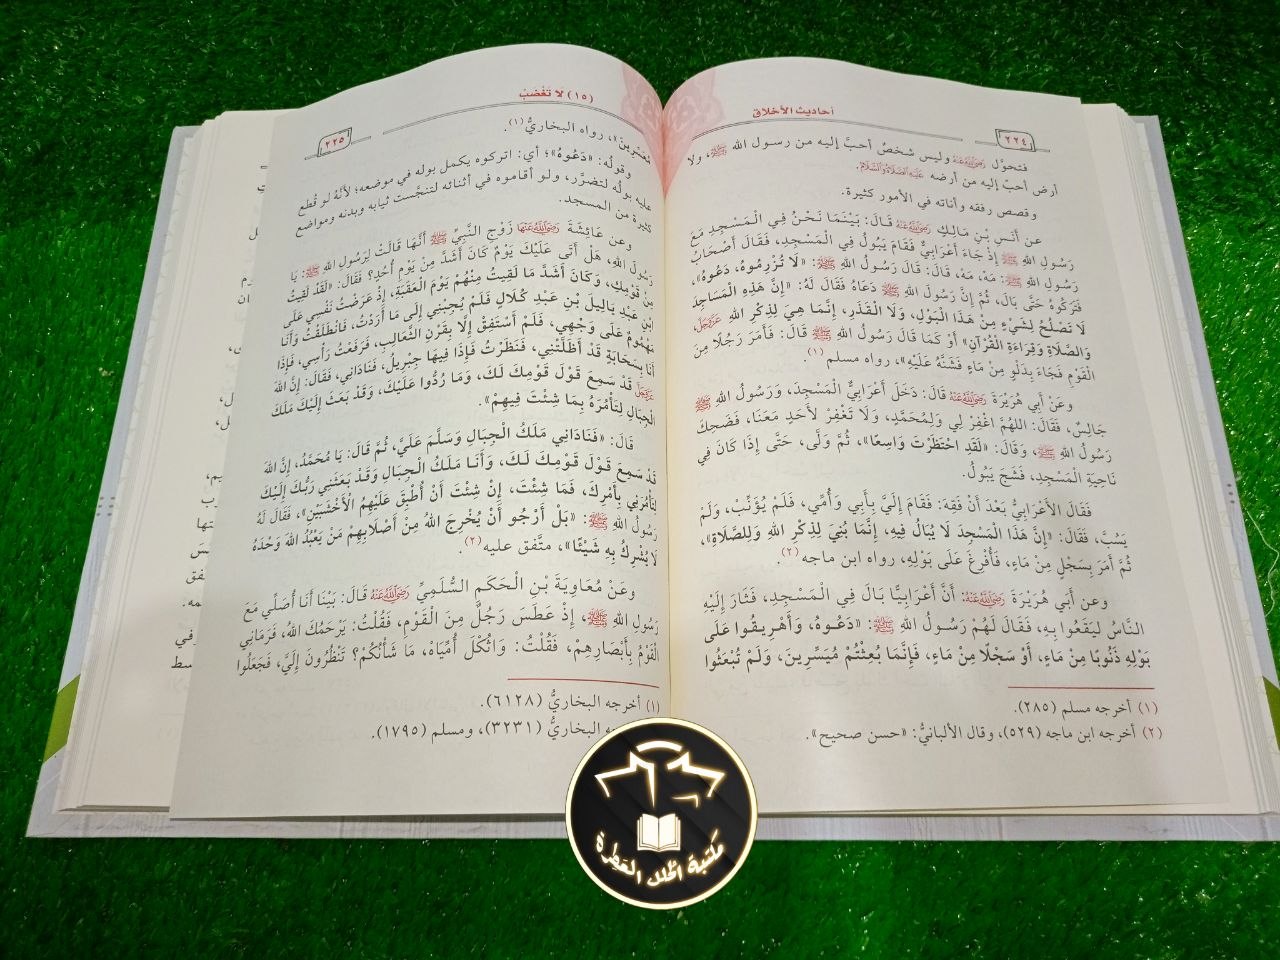 أحاديث الأخلاق
٢٢٤
فتحوّل رضي الله عنه وليس شخصٌ أحبَّ إليه من رسول الله ﷺ، ولا
أرض أحبّ إليه من أرضه عليه الصلاة والسلام.
وقصص رفقه وأناته في الأمور كثيرة.
عن أَنَسِ بْنِ مَالِكٍ رضي الله عنه قَالَ: بَيْنَمَا نَحْنُ فِي الْمَسْجِدِ مَعَ
رَسُولِ اللهِ ﷺ إِذْ جَاءَ أَعْرَابِيٌّ فَقَامَ يَبُولُ فِي الْمَسْجِدِ، فَقَالَ أَصْحَابُ
رَسُولِ اللهِ ﷺ: مَهْ، مَهْ، قَالَ: قَالَ رَسُولُ اللهِ ﷺ: «لَا تُزْرِمُوهُ، دَعُوهُ»،
فَتَرَكُوهُ حَتَّى بَالَ، ثُمَّ إِنَّ رَسُولَ اللهِ ﷺ دَعَاهُ فَقَالَ لَهُ: «إِنَّ هَذِهِ الْمَسَاجِدَ
لَا تَصْلُحُ لِشَيْءٍ مِنْ هَذَا الْبَوْلِ، وَلَا الْقَذَرِ، إِنَّمَا هِيَ لِذِكْرِ اللهِ عز وجل،
وَالصَّلَاةِ وَقِرَاءَةِ الْقُرْآنِ» أَوْ كَمَا قَالَ رَسُولُ اللهِ ﷺ قَالَ: فَأَمَرَ رَجُلًا مِنَ
الْقَوْمِ فَجَاءَ بِدَلْوٍ مِنْ مَاءٍ فَشَنَّهُ عَلَيْهِ»، رواه مسلم (١).
وعَنْ أَبِي هُرَيْرَةَ رضي الله عنه قَالَ: دَخَلَ أَعْرَابِيٌّ الْمَسْجِدَ، وَرَسُولُ اللهِ ﷺ
جَالِسٌ، فَقَالَ: اللهُمَّ اغْفِرْ لِي وَلِمُحَمَّدٍ، وَلَا تَغْفِرْ لأَحَدٍ مَعَنَا، فَضَحِكَ
رَسُولُ اللهِ ﷺ، وَقَالَ: «لَقَدِ احْتَظَرْتَ وَاسِعًا»، ثُمَّ وَلَّى، حَتَّى إِذَا كَانَ فِي
نَاحِيَةِ الْمَسْجِدِ، فَشَجَ يَبُولُ.
فَقَالَ الأَعْرَابِيُّ بَعْدَ أَنْ فَقِهَ: فَقَامَ إِلَيَّ بِأَبِي وَأُمِّي، فَلَمْ يُؤَنِّبْ، وَلَمْ
يَسُبَّ، فَقَالَ: «إِنَّ هَذَا الْمَسْجِدَ لَا يُبَالُ فِيهِ، إِنَّمَا بُنِيَ لِذِكْرِ اللهِ وَلِلصَّلَاةِ»،
ثُمَّ أَمَرَ بِسَجْلٍ مِنْ مَاءٍ، فَأُفْرِغَ عَلَى بَوْلِهِ، رواه ابن ماجه (٢).
وعن أَبِي هُرَيْرَةَ رضي الله عنه: أَنَّ أَعْرَابِيًّا بَالَ فِي الْمَسْجِدِ، فَثَارَ إِلَيْهِ
النَّاسُ لِيَقَعُوا بِهِ، فَقَالَ لَهُمْ رَسُولُ اللهِ ﷺ: «دَعُوهُ، وَأَهْرِيقُوا عَلَى
بَوْلِهِ ذَنُوبًا مِنْ مَاءٍ، أَوْ سَجْلًا مِنْ مَاءٍ، فَإِنَّمَا بُعِثْتُمْ مُيَسِّرِينَ، وَلَمْ تُبْعَثُوا
(١) أخرجه مسلم (٢٨٥).
(٢) أخرجه ابن ماجه (٥٢٩)، وقال الألبانيُّ: «حسن صحيح».
(١٥) لَا تَغْضَبْ
٢٢٥
مُعَسِّرِينَ»، رواه البخاريُّ (١).
وقولُه: «دَعُوهُ»؛ أي: اتركوه يكمل بوله في موضعه؛ لأنَّهُ لو قُطع
عليه بولُه لتضرَّر، ولو أقاموه في أثنائه لتنجَّست ثيابه وبدنه ومواضع
كثيرة من المسجد.
وعن عَائِشَةَ رضي الله عنها زَوْجِ النَّبِيِّ ﷺ أَنَّهَا قَالَتْ لِرَسُولِ اللهِ ﷺ: يَا
رَسُولَ اللهِ، هَلْ أَتَى عَلَيْكَ يَوْمٌ كَانَ أَشَدَّ مِنْ يَوْمِ أُحُدٍ؟ فَقَالَ: «لَقَدْ لَقِيتُ
مِنْ قَوْمِكِ، وَكَانَ أَشَدَّ مَا لَقِيتُ مِنْهُمْ يَوْمَ الْعَقَبَةِ، إِذْ عَرَضْتُ نَفْسِي عَلَى
ابْنِ عَبْدِ يَالِيلَ بْنِ عَبْدِ كُلَالٍ فَلَمْ يُجِبْنِي إِلَى مَا أَرَدْتُ، فَانْطَلَقْتُ وَأَنَا
مَهْمُومٌ عَلَى وَجْهِي، فَلَمْ أَسْتَفِقْ إِلَّا بِقَرْنِ الثَّعَالِبِ، فَرَفَعْتُ رَأْسِي، فَإِذَا
أَنَا بِسَحَابَةٍ قَدْ أَظَلَّتْنِي، فَنَظَرْتُ فَإِذَا فِيهَا جِبْرِيلُ، فَنَادَانِي، فَقَالَ: إِنَّ اللهَ
عز وجل قَدْ سَمِعَ قَوْلَ قَوْمِكَ لَكَ، وَمَا رُدُّوا عَلَيْكَ، وَقَدْ بَعَثَ إِلَيْكَ مَلَكَ
الْجِبَالِ لِتَأْمُرَهُ بِمَا شِئْتَ فِيهِمْ».
قَالَ: «فَنَادَانِي مَلَكُ الْجِبَالِ وَسَلَّمَ عَلَيَّ، ثُمَّ قَالَ: يَا مُحَمَّدُ، إِنَّ اللهَ
قَدْ سَمِعَ قَوْلَ قَوْمِكَ لَكَ، وَأَنَا مَلَكُ الْجِبَالِ وَقَدْ بَعَثَنِي رَبُّكَ إِلَيْكَ
لِتَأْمُرَنِي بِأَمْرِكَ، فَمَا شِئْتَ، إِنْ شِئْتَ أَنْ أُطْبِقَ عَلَيْهِمُ الْأَخْشَبَيْنِ»، فَقَالَ لَهُ
رَسُولُ اللهِ ﷺ: «بَلْ أَرْجُو أَنْ يُخْرِجَ اللهُ مِنْ أَصْلَابِهِمْ مَنْ يَعْبُدُ اللهَ وَحْدَهُ
لَا يُشْرِكُ بِهِ شَيْئًا»، متَّفق عليه (٢).
وعَنْ مُعَاوِيَةَ بْنِ الْحَكَمِ السُّلَمِيِّ رضي الله عنه قَالَ: بَيْنَا أَنَا أُصَلِّي مَعَ
رَسُولِ اللهِ ﷺ، إِذْ عَطَسَ رَجُلٌ مِنَ الْقَوْمِ، فَقُلْتُ: يَرْحَمُكَ اللهُ، فَرَمَانِي
الْقَوْمُ بِأَبْصَارِهِمْ، فَقُلْتُ: وَاثُكْلَ أُمِّيَاهْ، مَا شَأْنُكُمْ؟ تَنْظُرُونَ إِلَيَّ، فَجَعَلُوا
(١) أخرجه البخاريُّ (٦١٢٨).
البخاريُّ (٣٢٣١)، ومسلم (١٧٩٥).
مكتبة الحلل العطرة